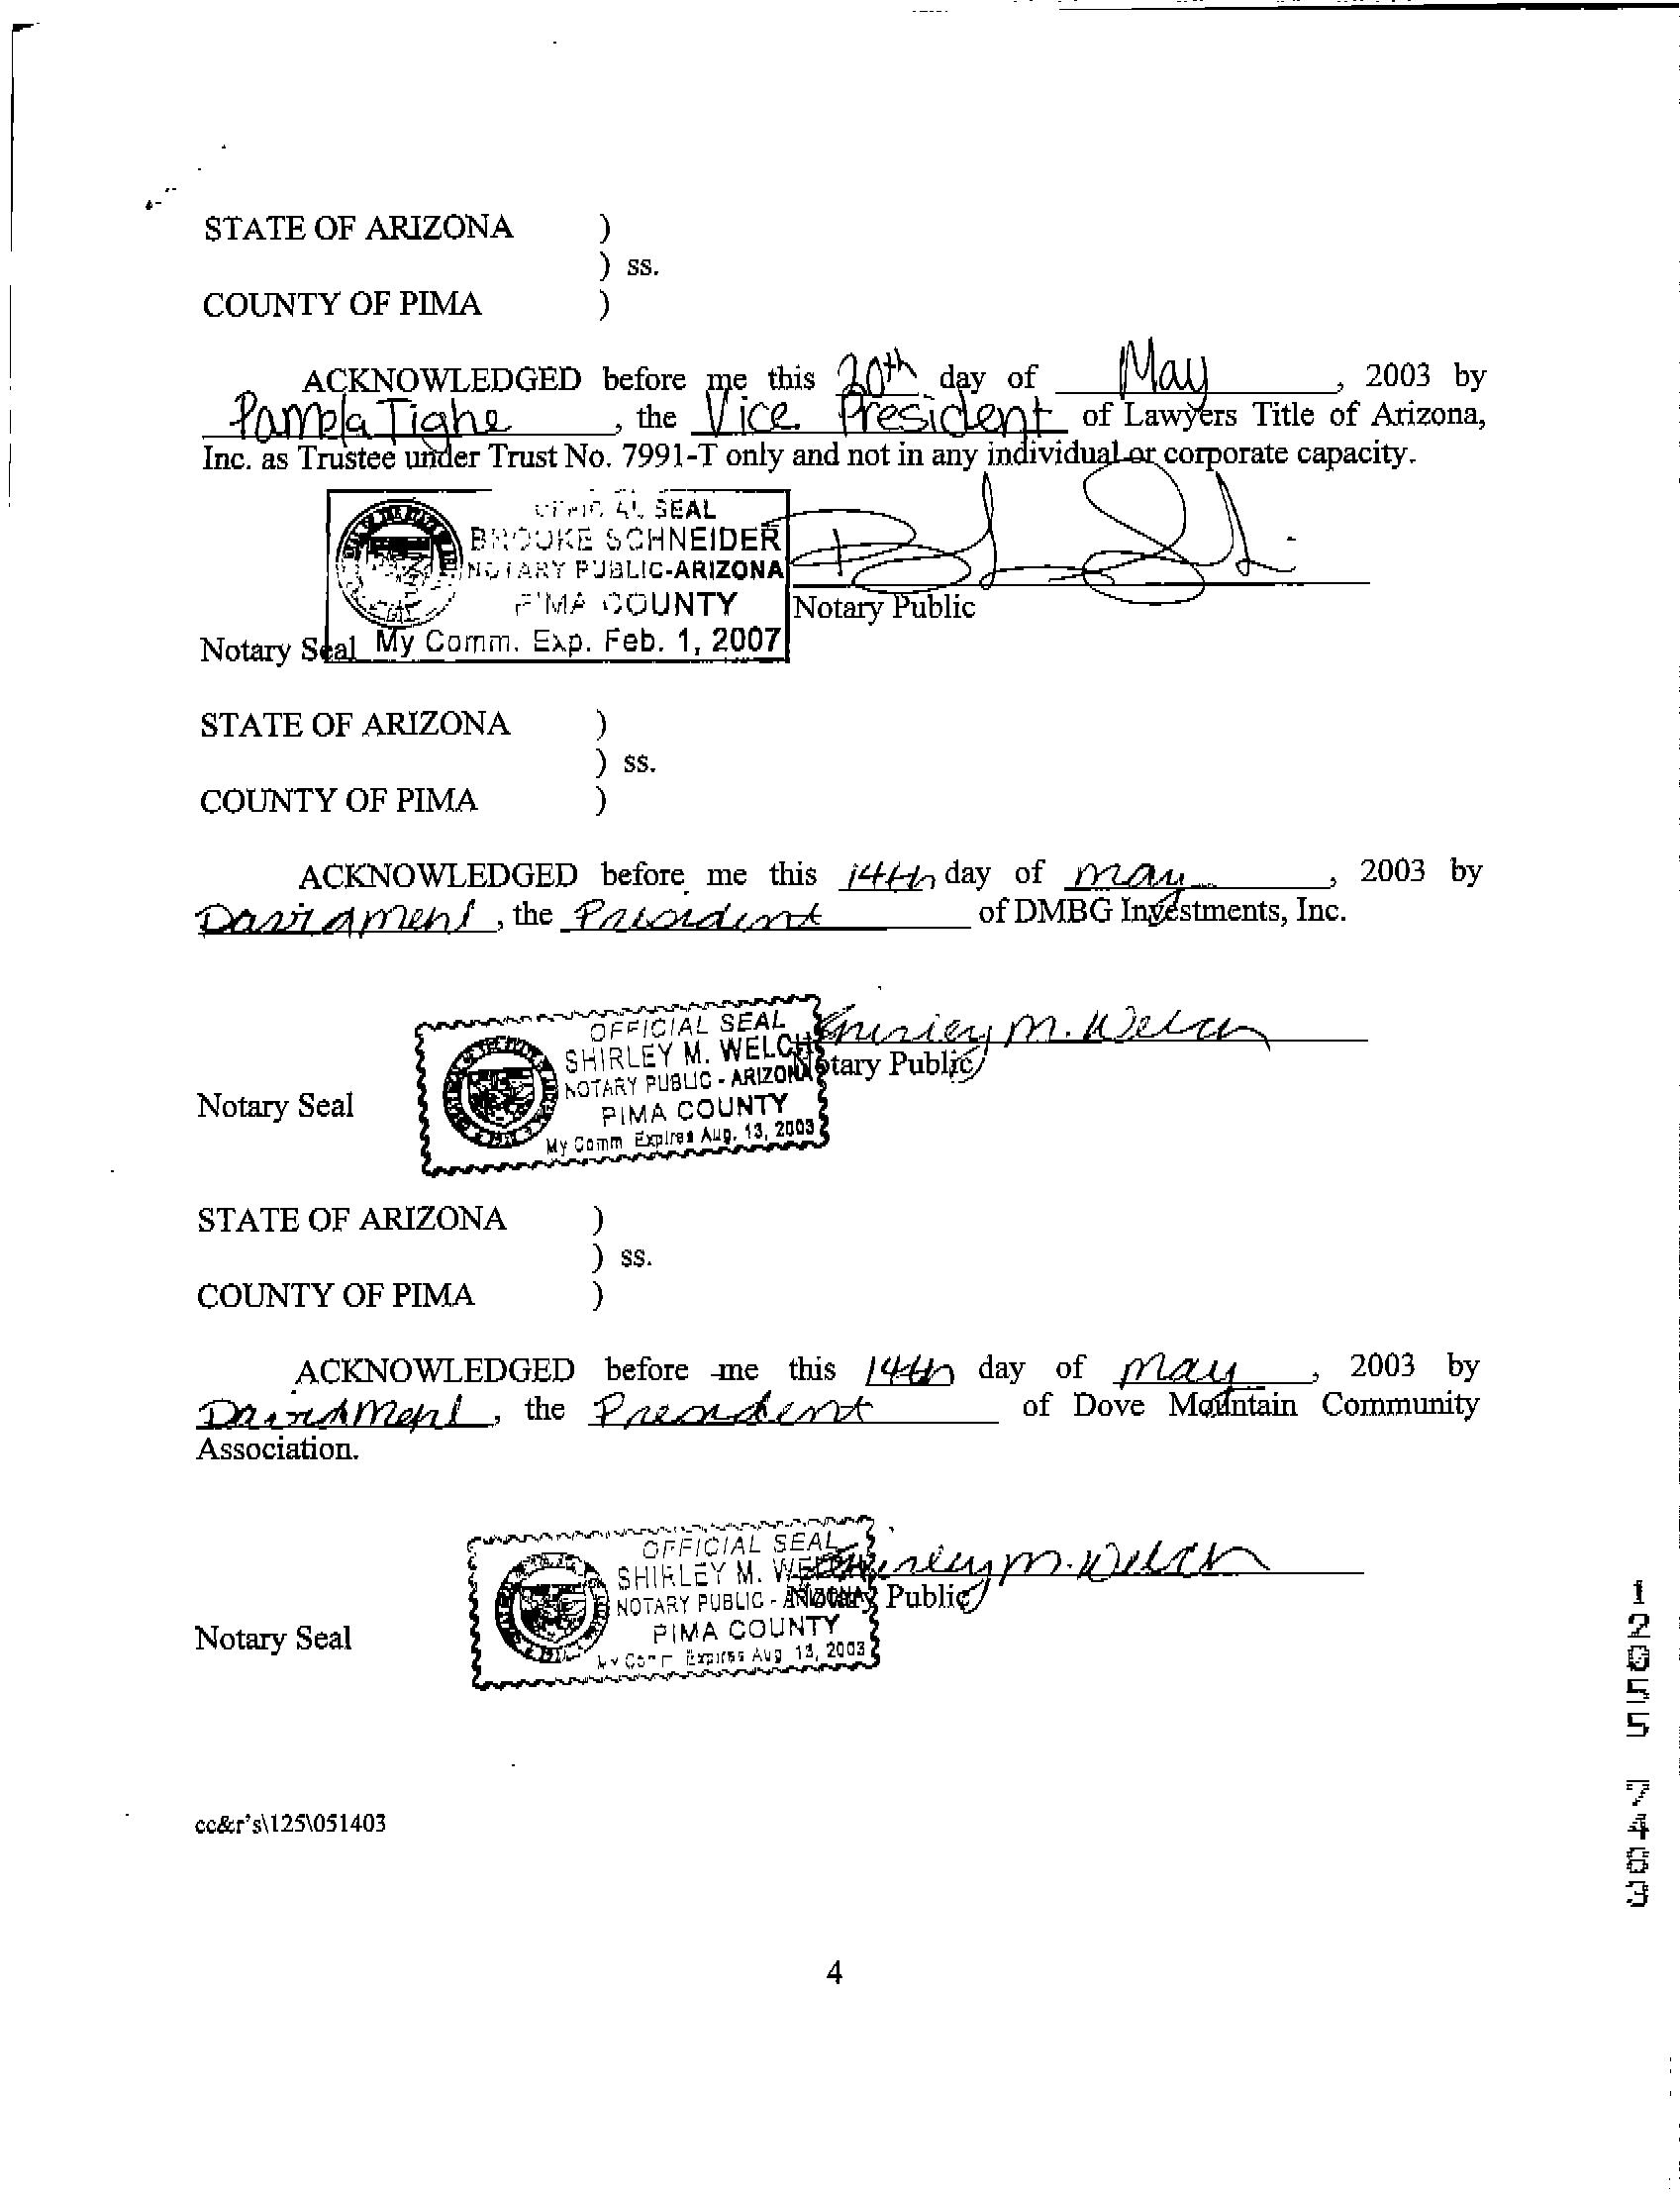 STATE OF ARIZONA )
) ss.
COUNTY OF PIMA )
ACKNOWLEDGED before me this 20th day of May, 2003 by
Pamela Tighe, the Vice President of Lawyers Title of Arizona,
Inc. as Trustee under Trust No. 7991-T only and not in any individual or corporate capacity.
OFFICIAL SEAL
BROOKE SCHNEIDER
NOTARY PUBLIC-ARIZONA
PIMA COUNTY
My Comm. Exp. Feb. 1, 2007
Notary Public
Notary Seal
STATE OF ARIZONA )
) ss.
COUNTY OF PIMA )
ACKNOWLEDGED before me this 14th day of May, 2003 by
David Mehl, the President of DMBG Investments, Inc.
OFFICIAL SEAL
SHIRLEY M. WELCH
NOTARY PUBLIC - ARIZONA
PIMA COUNTY
My Comm Expires Aug. 13, 2003
Shirley M. Welch
Notary Public
Notary Seal
STATE OF ARIZONA )
) ss.
COUNTY OF PIMA )
ACKNOWLEDGED before me this 14th day of May, 2003 by
David Mehl, the President of Dove Mountain Community
Association.
OFFICIAL SEAL
SHIRLEY M. WELCH
NOTARY PUBLIC - ARIZONA
PIMA COUNTY
My Comm Expires Aug 13, 2003
Shirley M. Welch
Notary Public
Notary Seal
cc&r's\125\051403
4